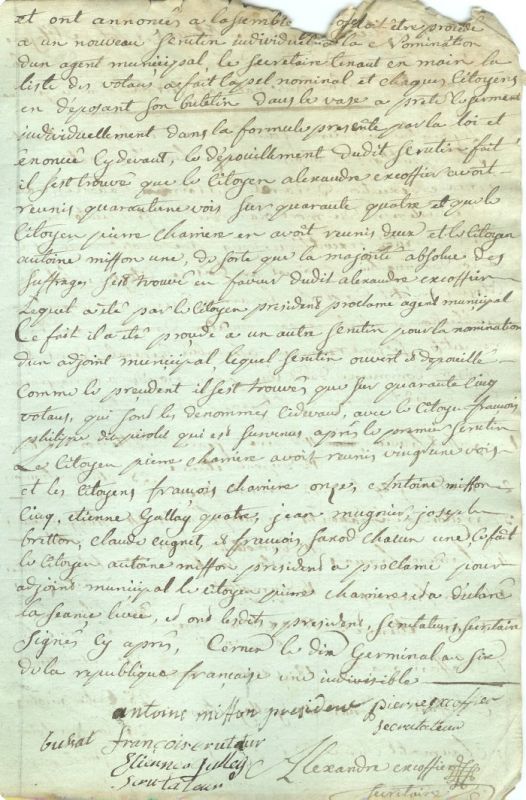 et ont annoncés a lassemblé doit être procédé
a un nouveau Serutin individuel a la Nomination
dun agent municipal, le Secretaire tenant en main la
liste des votans a fait lapel nominal et chaques Citoyens
en déposant Son buletin dans le vase a preté le serment
individuellement dans la formule presente par la loi et
énoncée Cydevant, le dépouillement dudit Serutin fait
il sest trouvé que le Citoyen alexandre excoffier avoit
reunis quarantune vois Sur quarante quatre et que le
Citoyen pierre Charriere en avoit reunis deux et le Citoyen
antoine miffon une, de sorte que la majorité absolue des
suffrages sest trouvé en faveur dudit alexandre excoffier
Lequel a été par le Citoyen president proclamé agent municipal
Ce fait il a été procédé a un autre Serutin pour la nomination
dun adjoint municipal, lequel Serutin ouvert et dépouillé
Comme le precedent il sest trouvés que sur quarante Cinq
votans, qui sont les dénommés Cidevant, avec le Citoyen françois
philippe qui est survenus après le premier Serutin
Le Citoyen pierre Charriere avoit reunis vingtune vois
et les Citoyens françois Charriere onze, Antoine miffon
Cinq, etienne Gallay quatre, jean mugnier, joseph
britton, claude cugnet, et françois Chacun une, Ce fait
le Citoyen antoine miffon president a proclamé pour
adjoint municipal le citoyen pierre Charriere et a déclaré
la Seance levée, et ont lesdits president, Serutateurs, Secretaire
Signés Cy après, Cernex le dix Germinal an six
de la republique française une indivisible
antoine miffon president pierre excoffier
secrutateur
buhat françois crutateur
Etienne
scrutateur
Alexandre excoffier
Secretaire